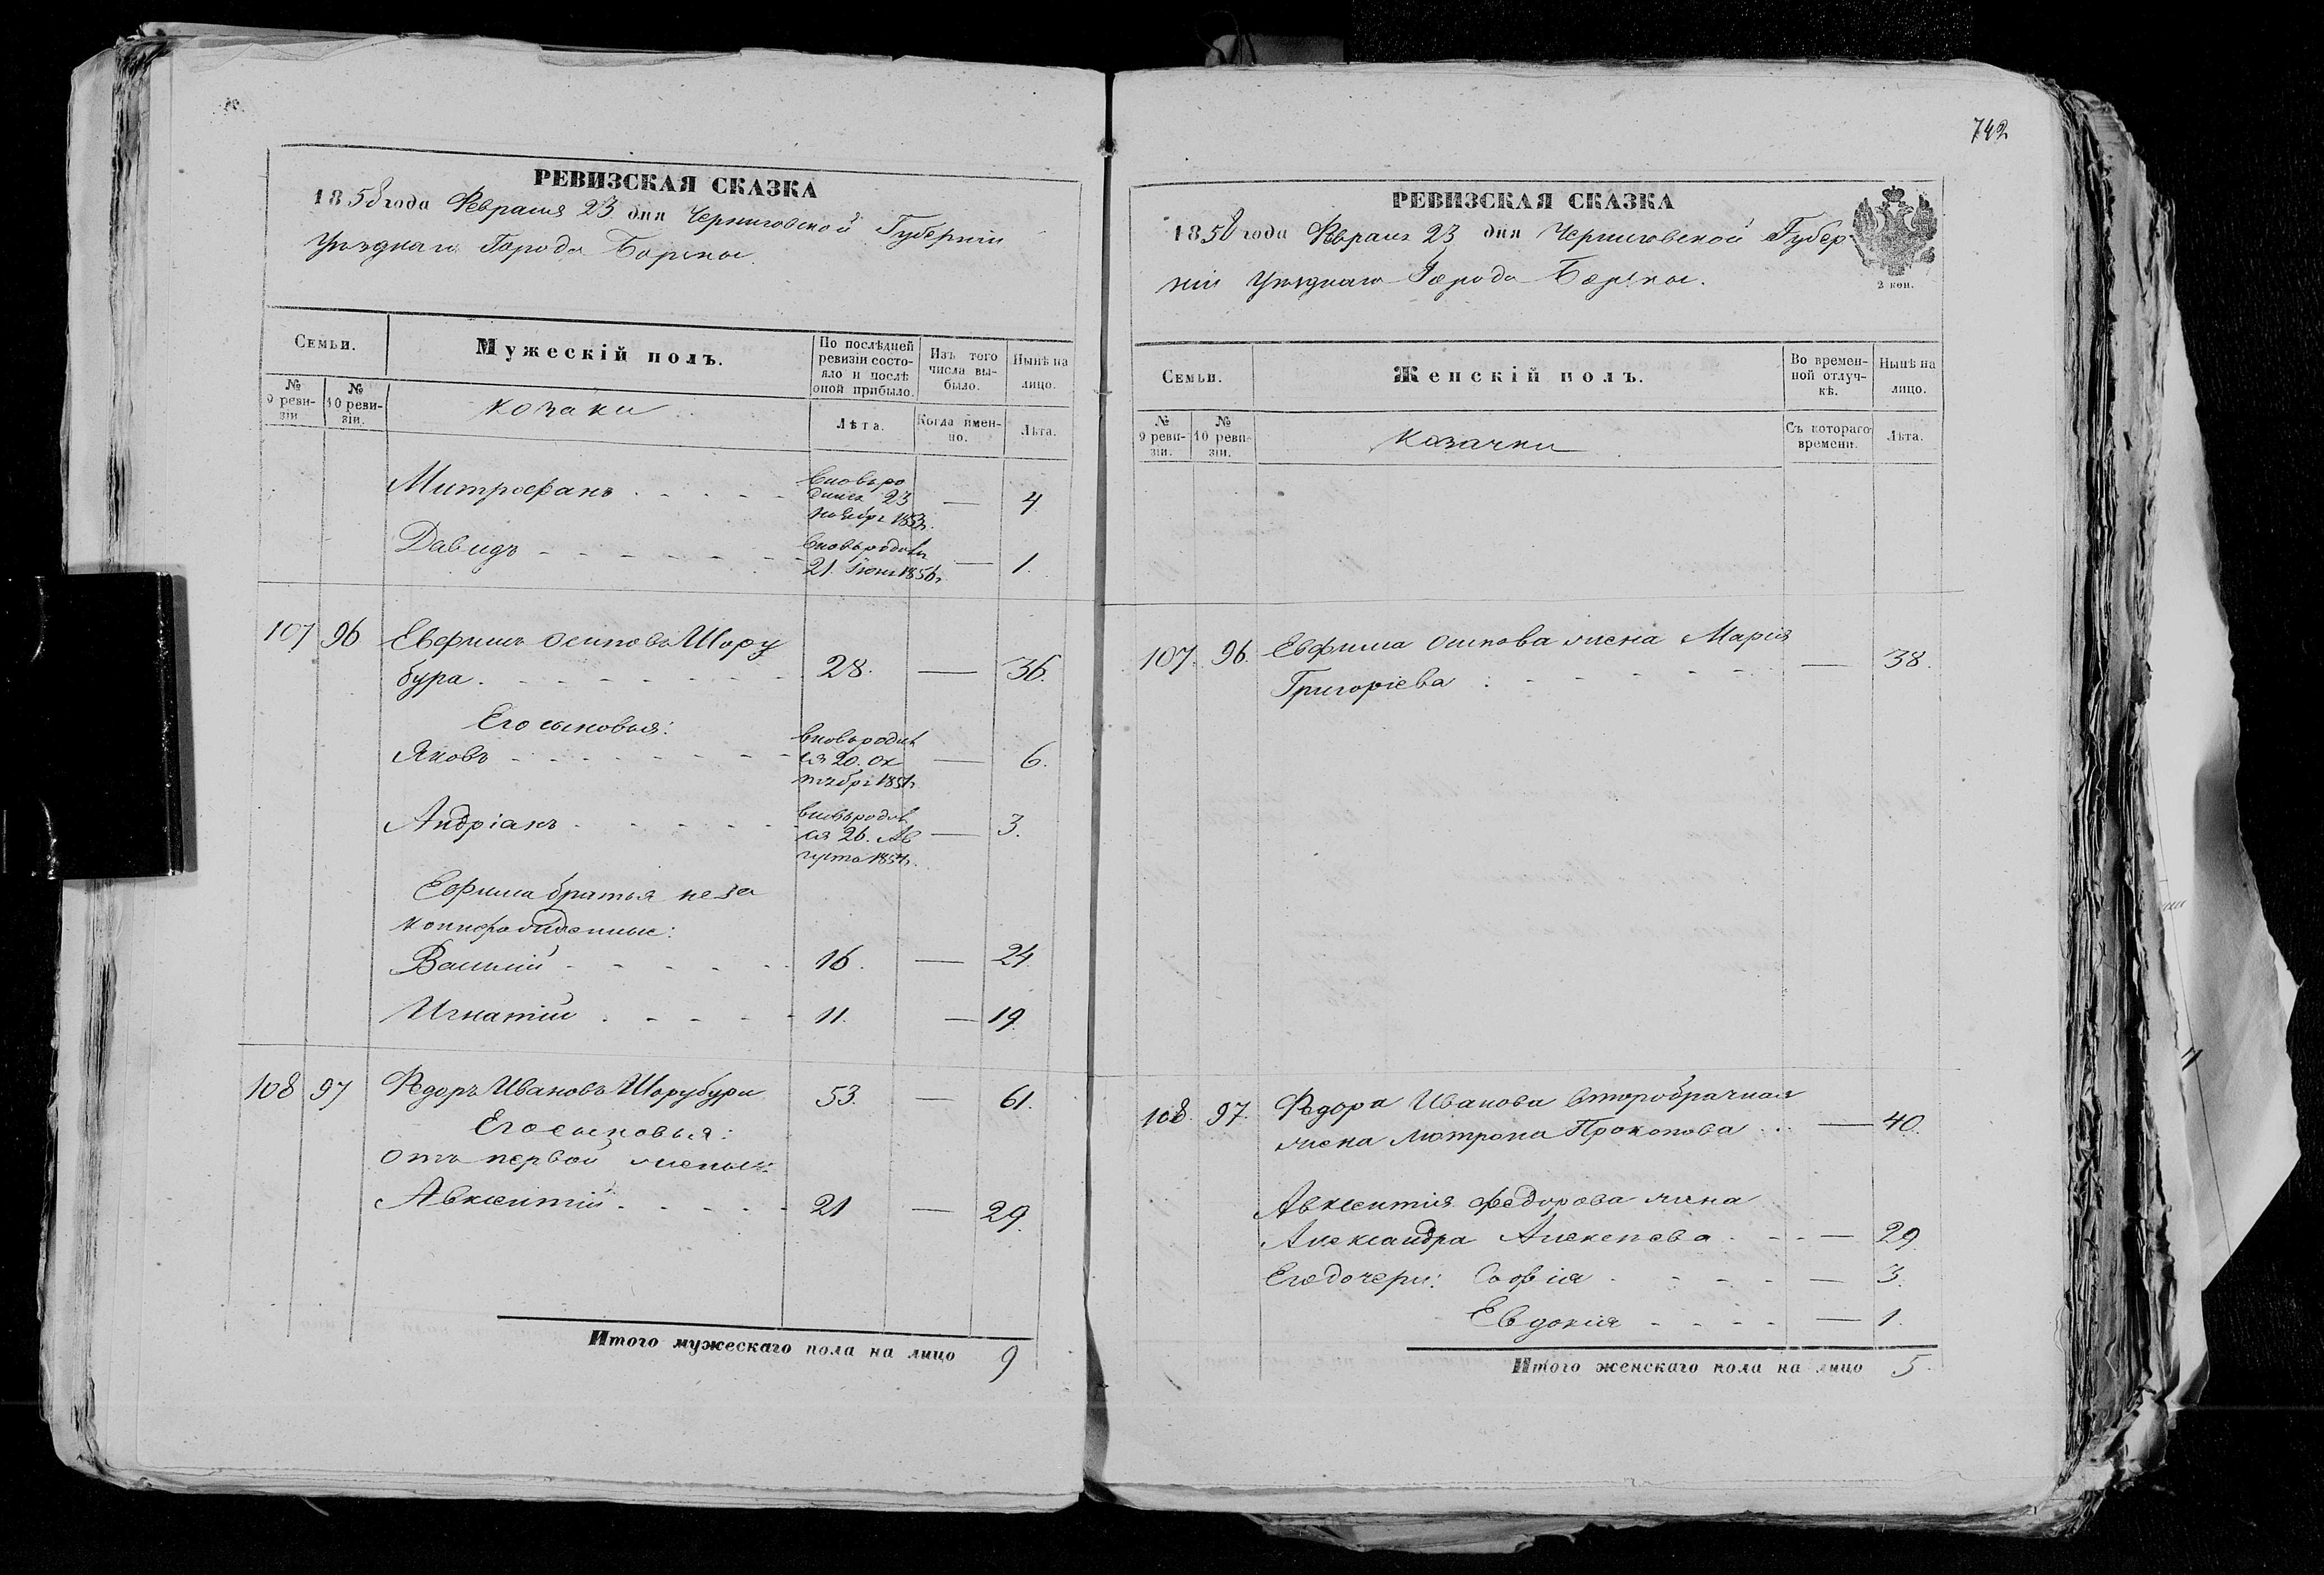 РЕВИЗСКАЯ СКАЗКА
1858 года Февраля 23 дня Черниговской Губерніи
Уѣзднаго Города Борзны.
Семьи.
Мужескій полъ.
По послѣдней ревизіи состояло и послѣ оной прибыло.
Изъ того числа выбыло.
Нынѣ на лицо.
№ 9 ревизіи
№ 10 ревизіи.
козаки
Лѣта.
Когда именно.
Лѣта.
Митрофанъ вновьро
дился 23 — 4
Ноября 1853г.
Давидъ вновьродился
21. Іюня 1856г. — 1.
107 96 Евфимъ Осиповъ Шору
бура. 28. — 36.
Его сыновья:
Яковъ вновьродил
ся 20. Ок — 6.
тября 1851г.
Андріанъ вновьродил
ся 26. Ав — 3.
густа 1854г.
Ефима братья неза
коннорожденные:
Василій 16. — 24.
Игнатій 11. — 19.
108 97 Федоръ Ивановъ Шорубура 53. — 61.
Его сыновья:
отъ первой жены:
Авксентій 21 — 29.
Итого мужескаго пола на лицо 9
742
РЕВИЗСКАЯ СКАЗКА
1858 года Февраля 23 дня Черниговской Губер
ніи Уѣзднаго Города Борзны.
2 коп.
Семьи.
Женскій полъ.
Во временной отлучкѣ.
Нынѣ на лицо.
№ 9 ревизіи.
№ 10 ревизіи.
козачки
Съ котораго времени.
Лѣта.
107. 96. Евфима Осипова жена Марія
Григоріева — 38.
108. 97. Федора Иванова второбрачная
жена Мотрона Прокопова — 40.
Авксентія Федорова жена
Александра Алексѣева — 29.
Его дочери: Софія — 3.
Евдокія — 1.
Итого женскаго пола на лицо 5.